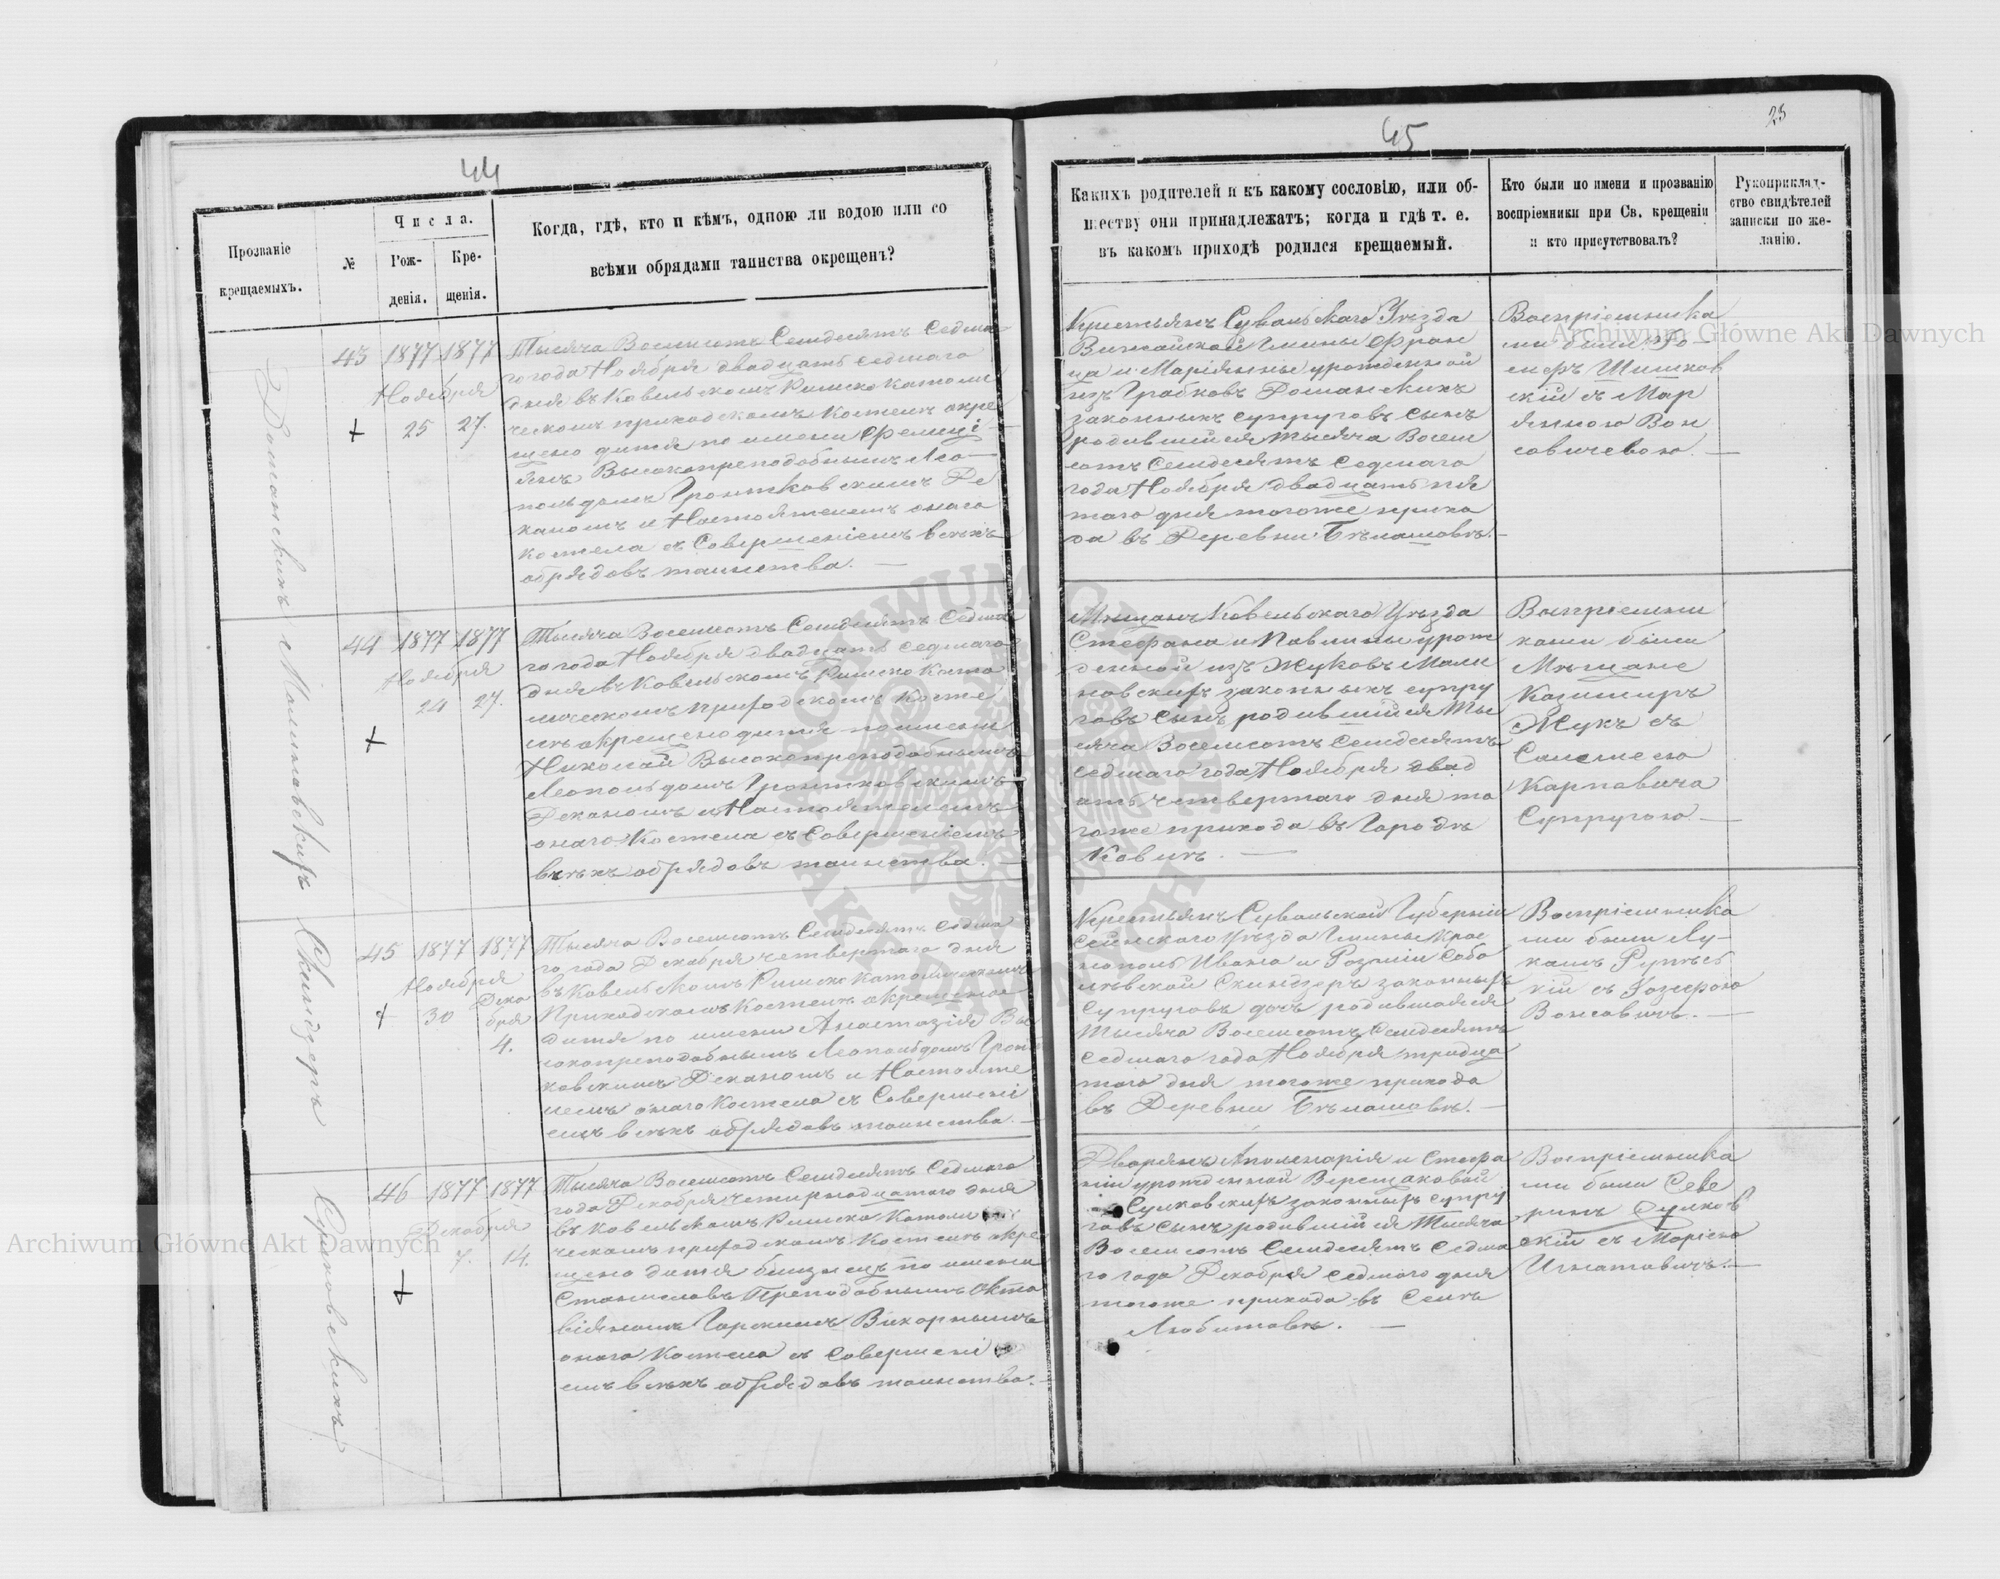 44
Прозваніе
крещаемыхъ.
№
Числа.
Рож-
денія.
Кре-
щенія.
Когда, гдѣ, кто и кѣмъ, одною ли водою или со
всѣми обрядами таинства окрещенъ?
Доманскихъ
43 1877 1877
Ноября
25 27.
Тысяча Восемсотъ Семдесятъ Седма-
го года Ноября двадцать седмаго
дня въ Ковельскомъ Римско Католи
ческомъ приходскомъ Костелѣ окре-
щено дитя по имени Фелиці-
янъ Высокопреподобнымъ Лео-
польдомъ Гронтковскимъ Де
каномъ и Настоятелемъ онаго
костела съ Совершеніемъ всѣхъ
обрядовъ таинства.
Малиновскихъ
44 1877 1877
Ноября
24 27.
Тысяча Восемсотъ Семдесятъ Седма
го года Ноября двадцать седмаго
дня въ Ковельскомъ Римско Като
лическомъ приходскомъ Косте
лѣ окрещено дитя по имени
Николай Высокопреподобнымъ
Леопольдомъ Гронтковскимъ
Деканомъ и Настоятелемъ
онаго Костела съ Совершеніемъ
всѣхъ обрядовъ таинства.
Скиндзеръ
45 1877 1877
Ноября
30
Дека
бря
4.
Тысяча Восемсотъ Семдесятъ Седма
го года Декабря четвертаго дня
въ Ковельскомъ Римско Католическомъ
Приходскомъ Костелѣ окрещено
дитя по имени Анастазія Вы
сокопреподобнымъ Леопольдомъ Гронт
ковскимъ Деканомъ и Настояте
лемъ онаго Костела съ Совершені
емъ всѣхъ обрядовъ таинства.
Сулковскихъ
46 1877 1877
Декабря
7. 14.
Тысяча Восемсотъ Семдесятъ Седмаго
года Декабря четырнадцатаго дня
въ Ковельскомъ Римско Католи
ческомъ приходскомъ Костелѣ окре
щено дитя близнецъ по имени
Станиславъ Преподобнымъ Окта
віяномъ Горскимъ Викарнымъ
онаго Костела съ Совершені
емъ всѣхъ обрядовъ таинства.
45
23
Какихъ родителей и къ какому сословію, или об-
ществу они принадлежатъ; когда и гдѣ т. е.
въ какомъ приходѣ родился крещаемый.
Кто были по имени и прозванію
воспріемники при Св. крещеніи
и кто присутствовалъ?
Рукоприклад-
ство свидѣтелей
записки по же-
ланію.
Крестьянъ Сувальскаго Уѣзда
Вижайской Гмины Фран
ца и Маріянны урожденной
изъ Грабковъ Доманскихъ
законныхъ супруговъ сынъ
родившійся тысяча Восем
сотъ Семдесятъ Седмаго
года Ноября двадцать пя
таго дня тогоже прихо
да въ Деревни Бѣлашовъ.
Воспріемника
ми были
Шишков
скій съ Мар
янною Вон
совичевою.
Мѣщанъ Ковельскаго Уѣзда
Стефана и Павлины урож
денной изъ Жуковъ Мали
новскихъ законныхъ супру
говъ сынъ родившійся Ты
сяча Восемсотъ Семдесятъ
Седмаго года Ноября двад
ать четвертаго дня то
гоже прихода въ Городѣ
Ковлѣ.
Воспріемни
ками были
Мѣщане
Казимиръ
Жукъ съ
Саломеею
Карповича
Супругою
Крестьянъ Сувальской Губерніи
Сейнскаго Уѣзда Гмины Крас
нополь Ивана и Розаліи Собо
левской Скиндзеръ законныхъ
Супруговъ дочь родившаяся
Тысяча Восемсотъ Семдесятъ
Седмаго года Ноября тридца
таго дня тогоже прихода
въ Деревни Бѣлашовъ.
Воспріемника
ми были Лу-
кашъ
кій съ Іозефою
Вонсовичъ.
Дворянъ Аполинарія и Стефа
ніи урожденной Верещаковой
Сулковскихъ законныхъ супру
говъ сынъ родившійся Тысяча
Восемсотъ Семдесятъ Седма
го года Декабря седмаго дня
тогоже прихода въ Селѣ
Любитовѣ.
Воспріемника
ми были Севе
ринъ Сулков
скій съ Маріею
Игнатовичъ.
Archiwum Główne Akt Dawnych
Archiwum Główne Akt Dawnych
ARCHIWUM GŁÓWNE AKT DAWNYCH